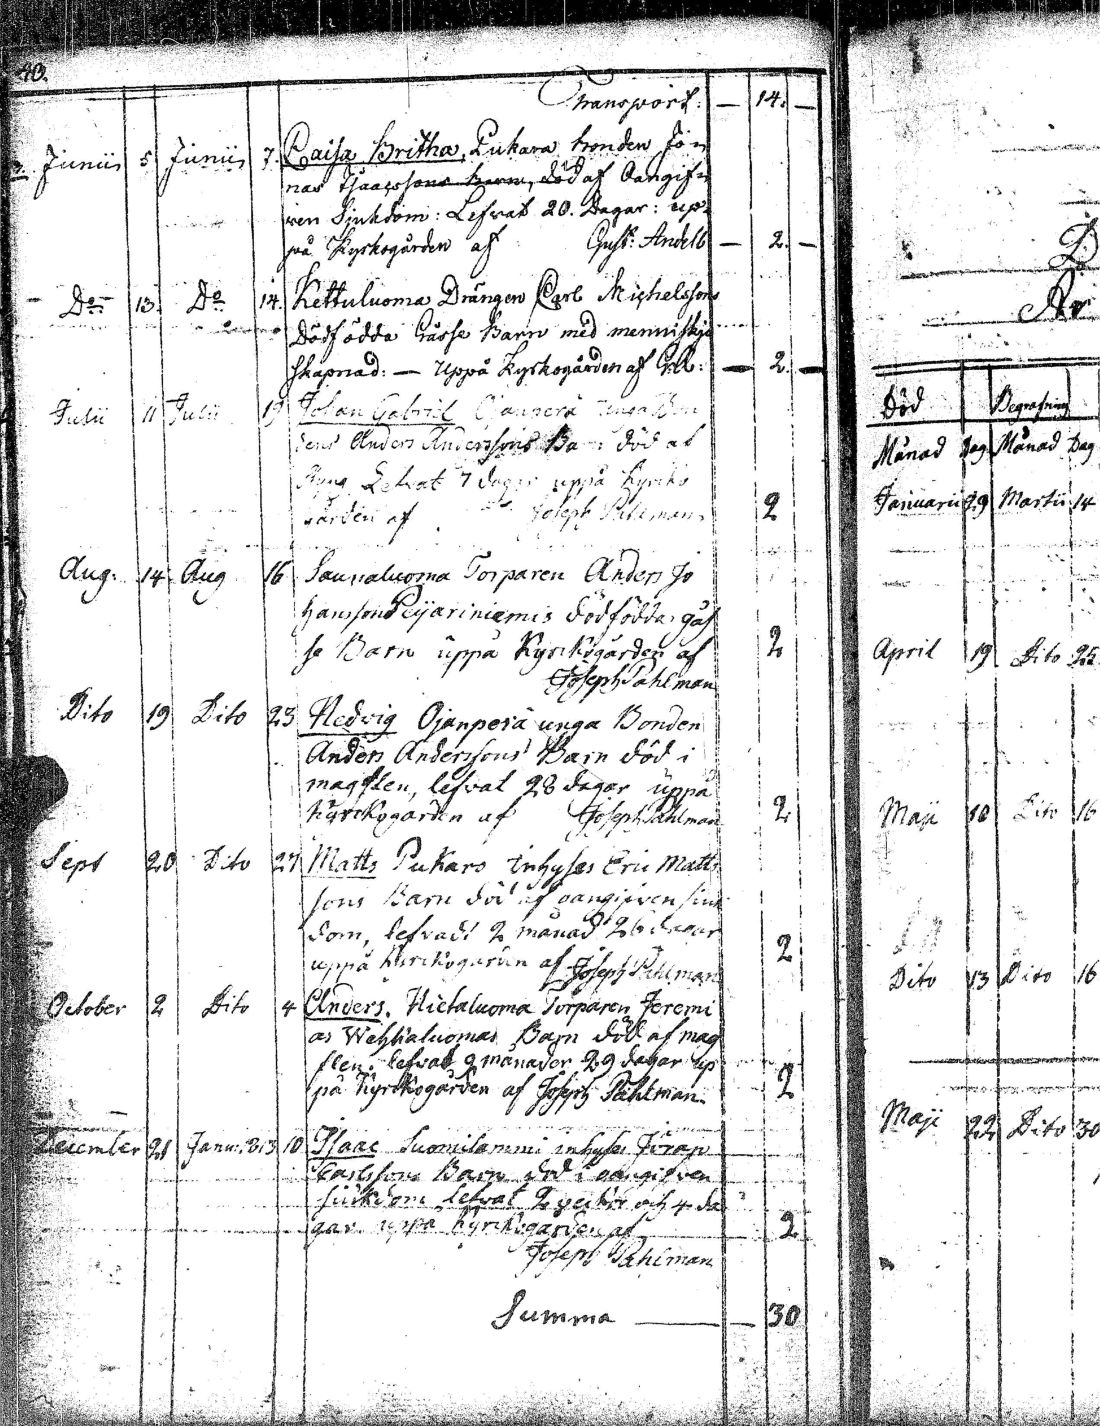 40.
Transport: — 14. —
Junii 5 Junii 7. Caisa Britha, Pukara bonden Jo=
nas Isaacssons barn, död af Oangif=
ven Sjukdom: Lefvat 20. Dagar: up=
på Kyrkogården af Gust: Andelb — 2. —
Do 13. Do 14. Kettuluoma Drängen Carl Michelssons
Dödfödda Gåsse Barn med menniskje
skapnad: — Uppå Kyrkogården af G.A: — 2. —
Julii 11 Julii Johan Gabriel Ojanperä unga Bon
dens Anders Anderssons Barn död af
Lefvat 7 dagar uppå Kyrko
gården af Joseph Påhlman 2
Aug. 14 Aug 16 Saunaluoma Torparen Anders Jo
hanssons Peijariniemis dödfödda gås
se Barn uppå Kyrkogården af 2
Joseph Påhlman
Dito 19 Dito 23 Hedvig Ojanperä unga Bonden
Anders Anderssons Barn död i
magflen, lefvat 28 dagar uppå
Kyrckogården af Joseph Påhlman 2
Sept 20 Dito 27 Matts Pukaro inhyses Eric Matts
sons Barn död af oangifven siuk
dom, lefvadt 2 månad 26 dagar
uppå Kyrckogården af Joseph Påhlman 2
October 2 Dito 4 Anders. Hietaluoma Torparen Jeremi
as Barn död af mag
flen. lefvat 9 månader 29 dagar up
på Kyrckogården af Joseph Påhlman. 2
December 21 Janu: 1813 10 Isaac Suomilammi inhyses
Carlssons Barn död i oangifven
siukdom lefvat 2 veckor och 4 da
gar uppå Kyrckogården af 2
Joseph Påhlman
Summa — 30
Död Begrafning
Månad Dag Månad Dag
Januarii 29 Martii 14
April 19 Dito 25
Maji 10 Dito 16
Dito 13 Dito 16
Maji 22 Dito 30